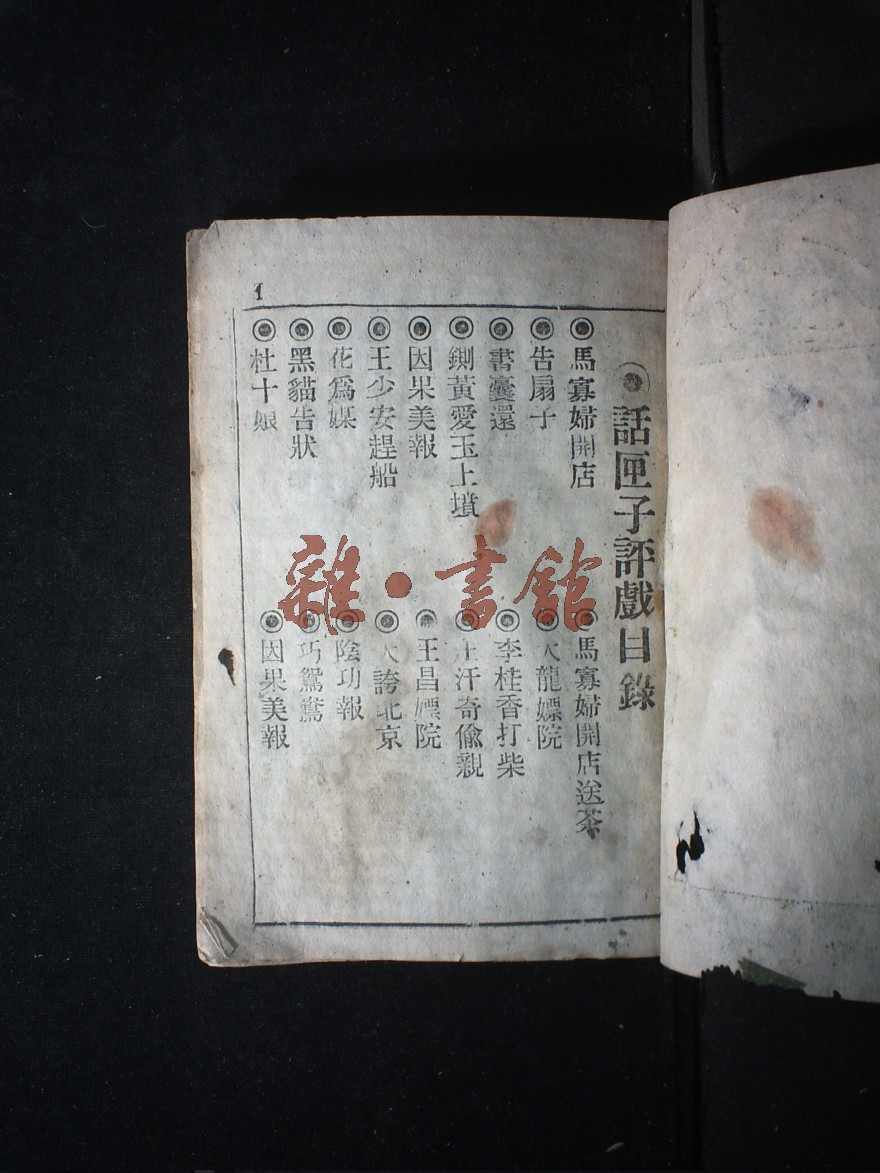 1
話匣子評戲目錄
馬寡婦開店
馬寡婦開店送茶
告扇子
大龍嫖院
書囊還
李桂香打柴
鍘黃愛玉上墳
汗奇偸親
因果美報
王昌嫖院
王少安趕船
大誇北京
花爲媒
陰功報
黑貓告狀
巧鴛鴦
杜十娘
因果美報
雜·書館